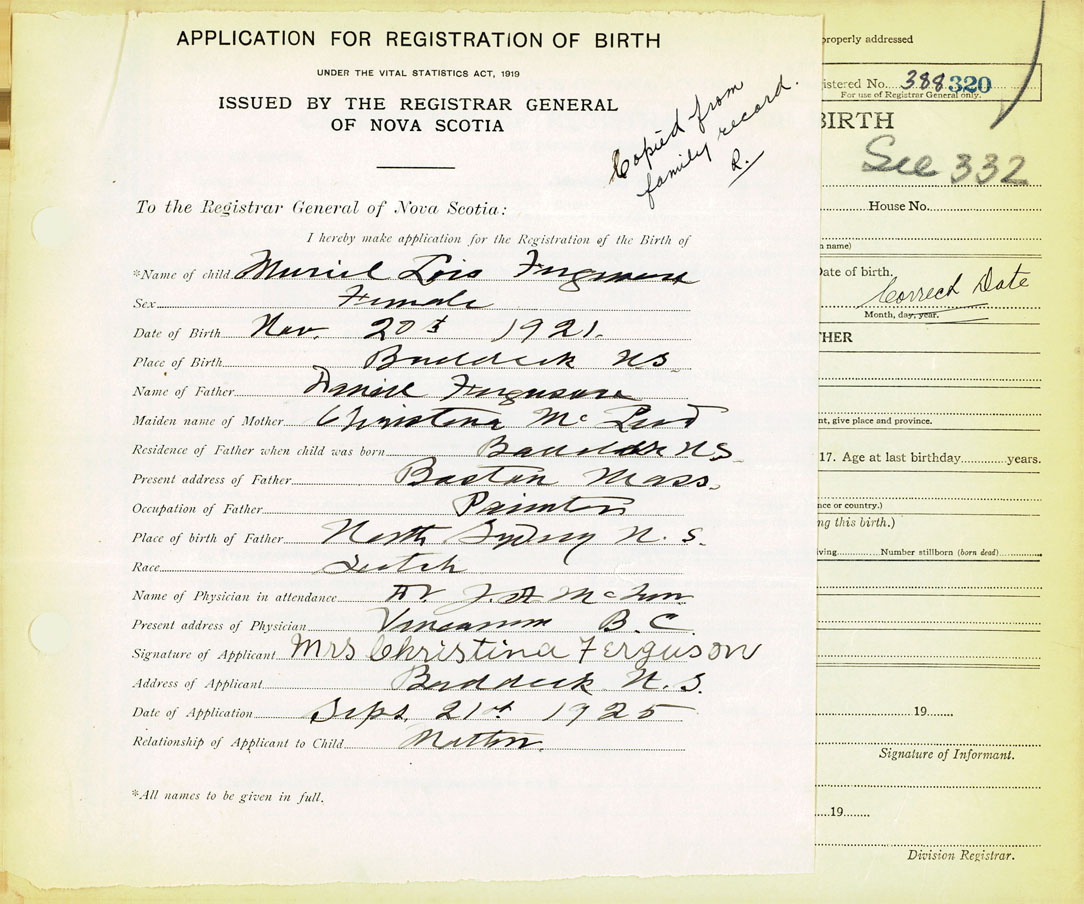 APPLICATION FOR REGISTRATION OF BIRTH
UNDER THE VITAL STATISTICS ACT, 1919
ISSUED BY THE REGISTRAR GENERAL
OF NOVA SCOTIA
Copied from
family record.
R.
To the Registrar General of Nova Scotia:
I hereby make application for the Registration of the Birth of
*Name of child Muriel Lois Ferguson
Sex Female
Date of Birth Nov. 20th 1921.
Place of Birth Baddeck NS
Name of Father Daniel Ferguson
Maiden name of Mother Christena McLeod
Residence of Father when child was born Baddeck NS
Present address of Father Boston Mass.
Occupation of Father Painter
Place of birth of Father North Sydney N. S.
Race Scotch
Name of Physician in attendance Dr J. A.
Present address of Physician B. C.
Signature of Applicant Mrs Christina Ferguson
Address of Applicant Baddeck N. S.
Date of Application Sept. 21st 1925
Relationship of Applicant to Child Mother.
*All names to be given in full.
properly addressed
istered No. 388 320
For use of Registrar General only.
BIRTH
See 332
House No.
n name)
Date of birth.
Correct Date
Month, day, year.
THER
nt, give place and province.
17. Age at last birthday years.
nce or country.)
ng this birth.)
iving Number stillborn (born dead)
19
Signature of Informant.
19
Division Registrar.